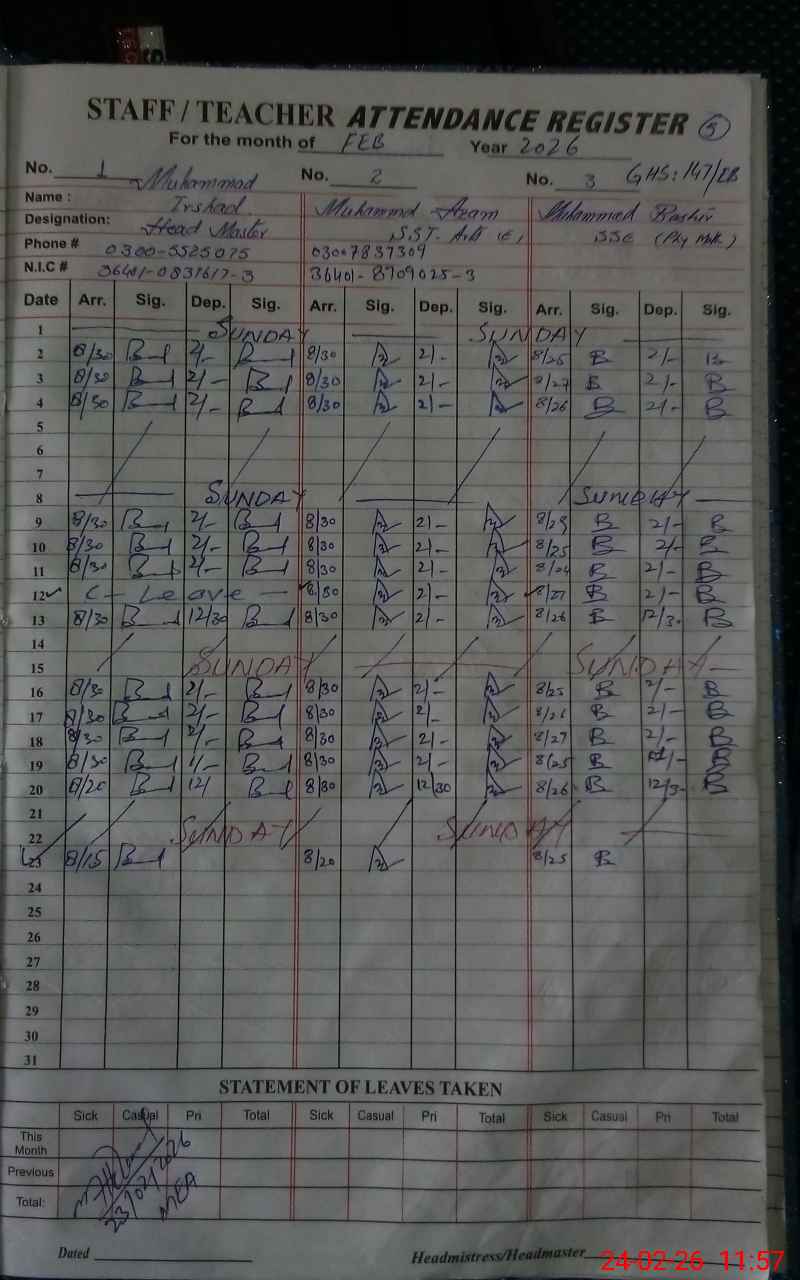 STAFF / TEACHER ATTENDANCE REGISTER 5
For the month of FEB Year 2026
No. 1 No. 2 No. 3 GHS: 147/EB
Name : Muhammad Irshad Muhammad Azam Muhammad Bashir
Designation: Head Master S.S.T. Arts SSE (Phy Mat.)
Phone # 0300-5525075 03007837309
N.I.C # 36401-0831617-3 36401-8709025-3
Date Arr. Sig. Dep. Sig. Arr. Sig. Dep. Sig. Arr. Sig. Dep. Sig.
1 SUNDAY SUNDAY
2 8/30 2/- 8/30 2/- 8/25 B 2/- B
3 8/30 2/- 8/30 2/- 8/27 B 2/- B
4 8/30 2/- 8/30 2/- 8/26 B 2/- B
5
6
7
8 SUNDAY SUNDAY
9 8/30 2/- 8/30 2/- 8/25 B 2/- B
10 8/30 2/- 8/30 2/- 8/25 B 2/- B
11 8/30 2/- 8/30 2/- 8/24 B 2/- B
12 C-Leave 8/30 2/- 8/27 B 2/- B
13 8/30 12/30 8/30 2/- 8/26 B 12/3- B
14
15 SUNDAY SUNDAY
16 8/30 2/- 8/30 2/- 8/25 B 2/- B
17 8/30 2/- 8/30 2/- 8/26 B 2/- B
18 8/30 2/- 8/30 2/- 8/27 B 2/- B
19 8/30 1/- 8/30 2/- 8/25 B B
20 8/20 12/ 8/30 12/30 8/26 B 12/3- B
21
22 SUNDAY SUNDAY
23 8/15 8/20 8/25 B
24
25
26
27
28
29
30
31
STATEMENT OF LEAVES TAKEN
Sick Casual Pri Total Sick Casual Pri Total Sick Casual Pri Total
This Month
Previous
Total:
23/02/2026
MEA
Dated Headmistress/Headmaster
24-02-26 11:57